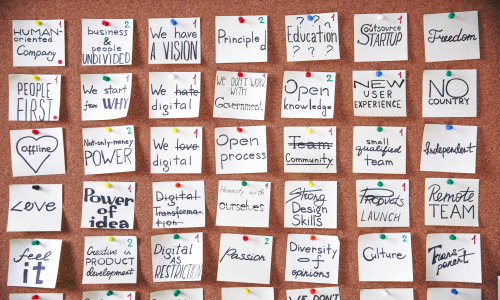 HUMAN-
oriented
Company.
1
business 2
&
people
UNDIVIDED
We have 1
A VISION
Principled
2
Education 2
? ? ? ?
Outsource 1
STARTUP
Freedom
PEOPLE 1
FIRST
We start
from WHY
We hate
digital
WE DON'T 1
WORK
WITH
Government
Open 2
knowledge
NEW 1
USER
EXPERIENCE
NO
COUNTRY
offline
1
Not-only-money 2
POWER
We love 1
digital
Open 1
process
Team 1
Community
small
qualified
team
Independent
LOVE
Power of 1
idea
Digital
Transforma-
tion
Honesty with
ourselves
Strong
Design
Skills
Prophets 1
LAUNCH
Remote
TEAM
feel
it
Creative in 2
PRODUCT
development
Digital 1
AS
RESTRICTION
Passion 2
Diversity 2
of
opinions
Culture 2
Trans- 1
parent
WE DON'T